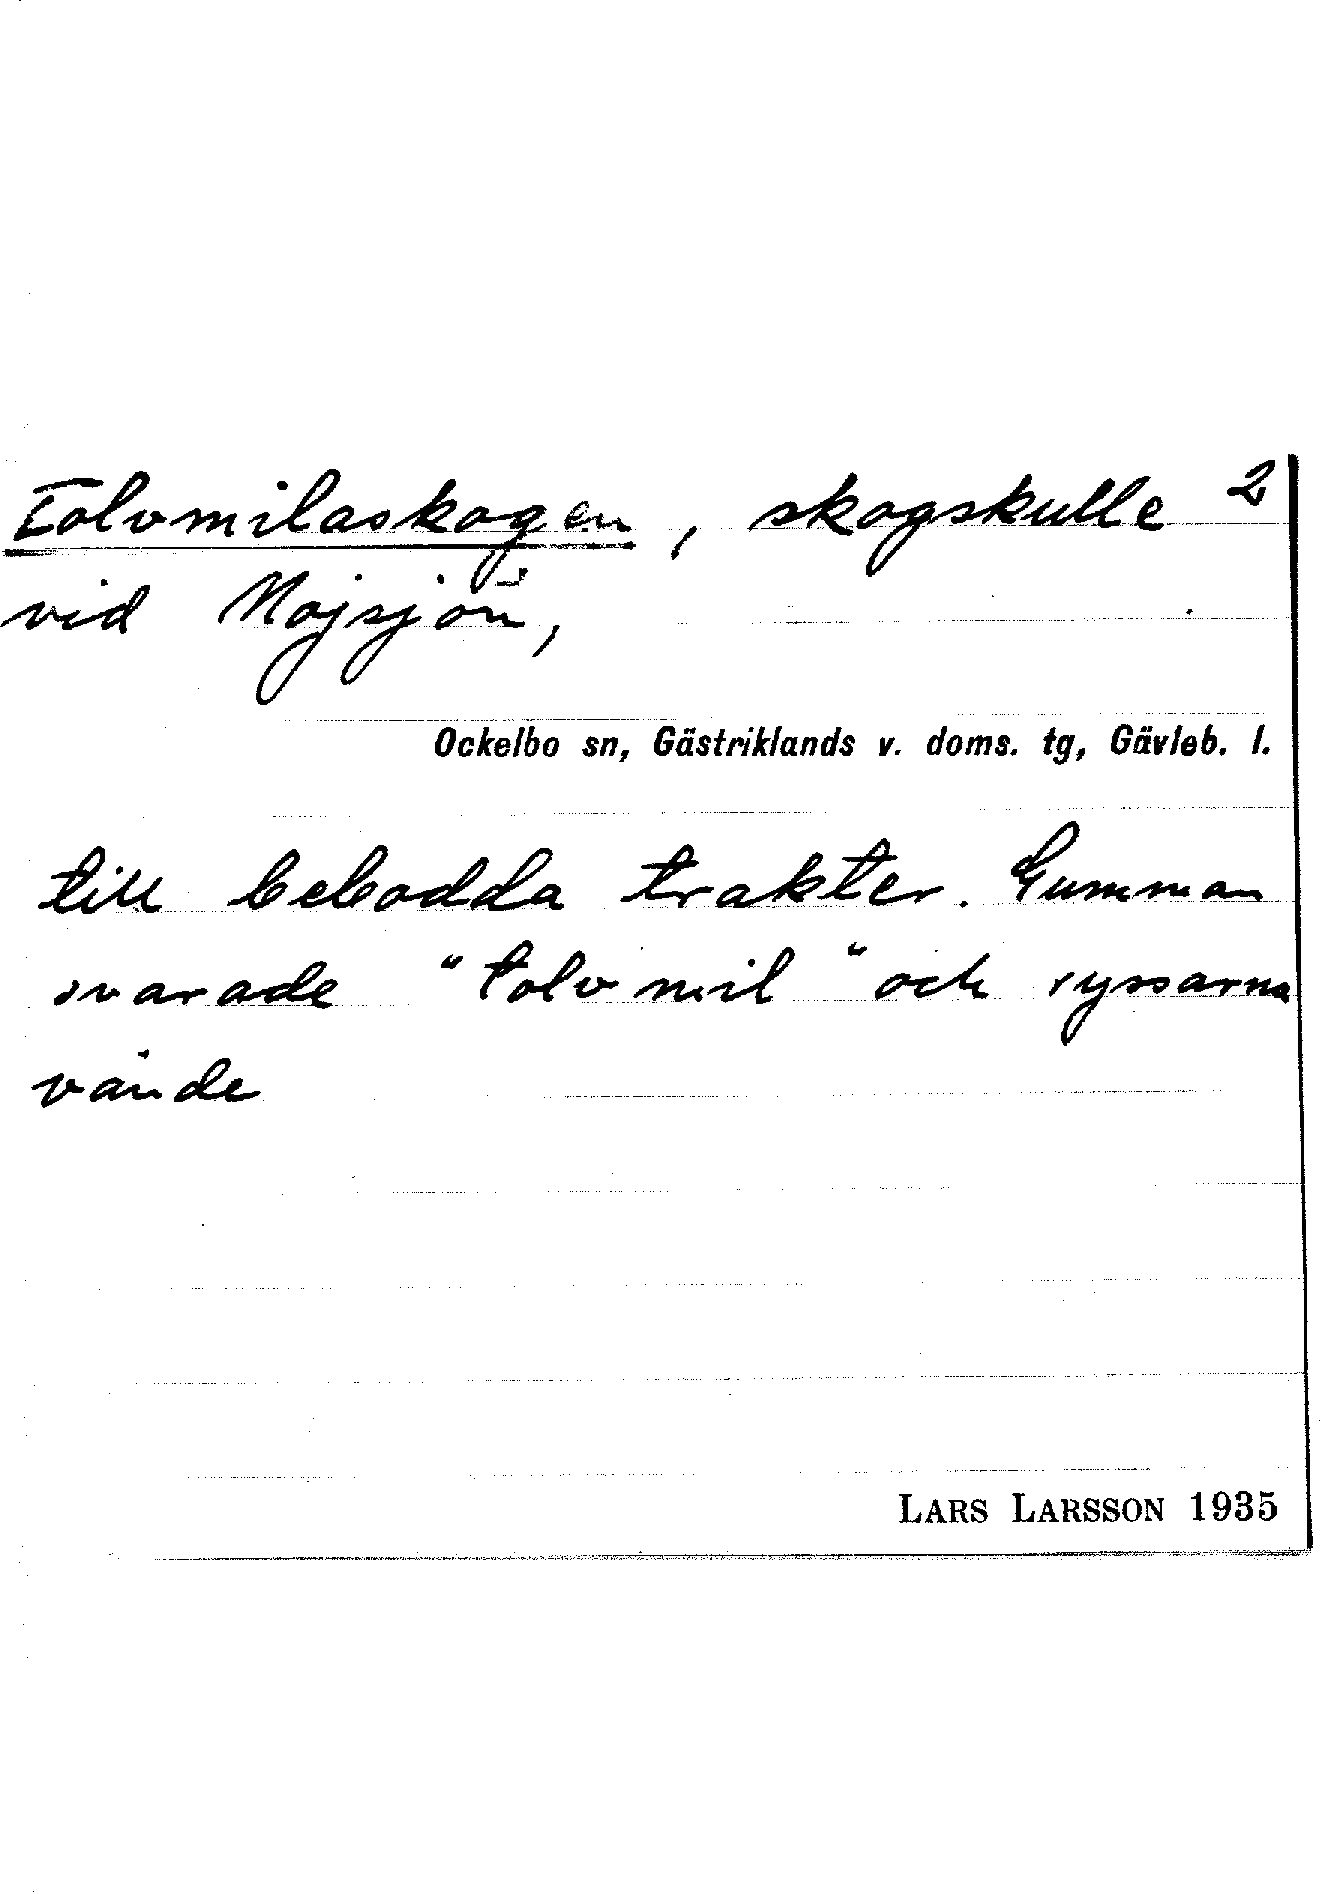 Tolvmilaskogen, skogskulle 2
vid Mojsjön,
Ockelbo sn, Gästriklands v. doms. tg, Gävleb. l.
till bebodda trakter. Gumman
svarade "tolv mil" och ryssarna
vände
LARS LARSSON 1935